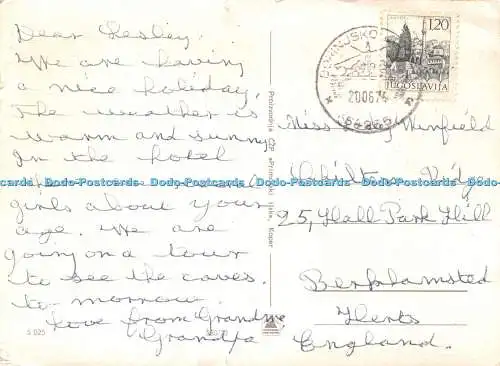 Dear Lesley,
We are having
a nice holiday,
The weather is
warm and sunny
In the hotel
girls about your
age. We are
going on a tour
to see the caves.
to-morrow.
love from Grandma
Grandpa
S 025
Proizvodnja ČZP »Primorski tisk«, Koper
1.20
JUGOSLAVIJA
20.06.74
Miss Winfield
25, Hall Park Hill
Berkhamsted
Herts
England.
Dodo-Postcards Dodo-Postcards Dodo-Postcards Dodo-Postcards Dodo-Postcards